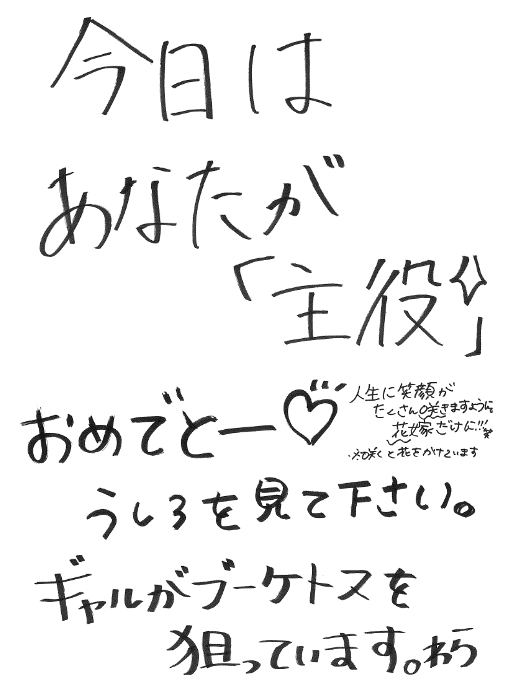 今日は
あなたが
「主役✧」
おめでとー♡
人生に笑顔が
たくさん咲きますように。
花嫁だけに!!!
※咲くと花をかけています
うしろを見て下さい。
ギャルがブーケトスを
狙っています。わら